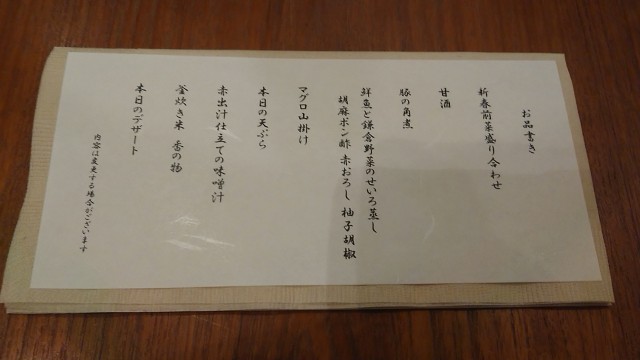 お品書き
新春前菜盛り合わせ
甘酒
豚の角煮
鮮魚と鎌倉野菜のせいろ蒸し
胡麻ポン酢 赤おろし 柚子胡椒
マグロ山掛け
本日の天ぷら
赤出汁仕立ての味噌汁
釜炊き米 香の物
本日のデザート
内容は変更する場合がございます